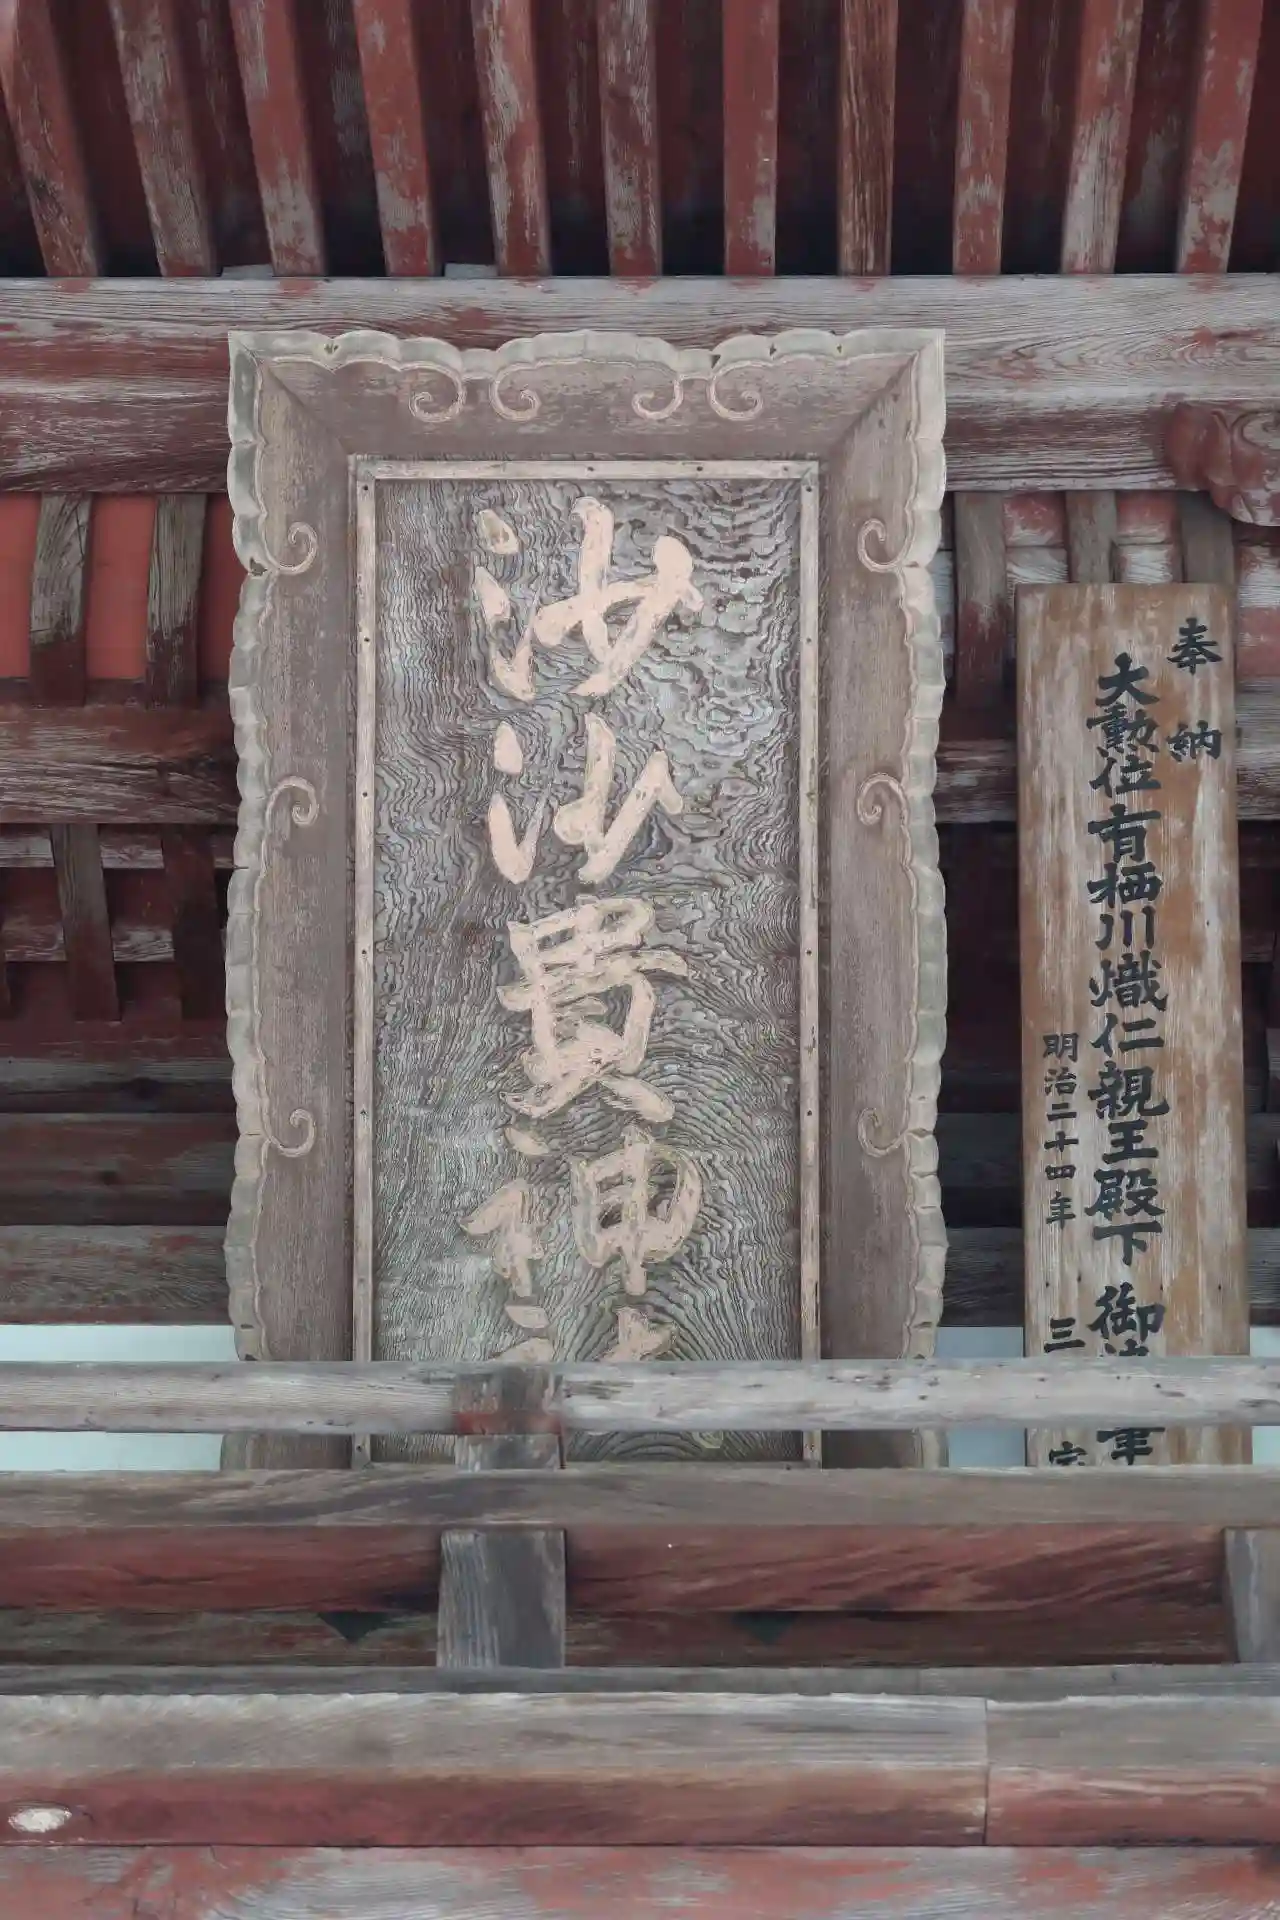 沙沙貴神社
奉納
大勲位有栖川熾仁親王殿下 御筆
明治二十四年 三